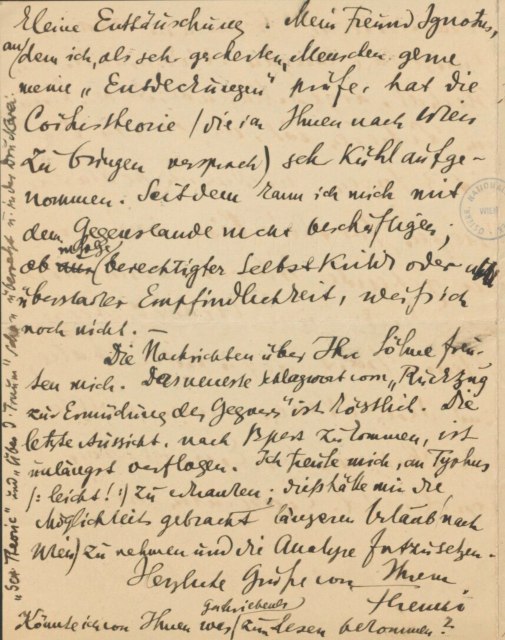 kleine Enttäuschung. Mein Freund Ignotus,
an dem ich, als sehr gescheiten Menschen gerne
meine „Entdeckungen" prüfe, hat die
Coitustheorie (die ich Ihnen nach Wien
zu bringen versprach) sehr kühl aufge-
nommen. Seitdem kann ich mich mit
dem Gegenstande nicht beschäftigen;
ob infolge berechtigter Selbstkritik oder
überstarker Empfindlichkeit, weiß ich
noch nicht. –
Die Nachrichten über Ihre Söhne freu-
ten mich. Das neueste Schlagwort vom „Rückzug
zur Ermüdung des Gegners" ist köstlich. Die
letzte Aussicht, nach Bpest zu kommen, ist
unlängst verflogen. Ich freute mich, an Typhus
/: leicht! :/ zu erkranken; dieß hätte mir die
Möglichkeit gebracht längeren Urlaub nach
Wien) zu nehmen und die Analyse fortzusetzen.
Herzliche Grüße von Ihrem
Ferenczi
Könnte ich von Ihnen was Geschriebenes zu lesen bekommen?
„Sex Theorie" und „Über d. Traum" schon übersetzt u. in der Druckerei.